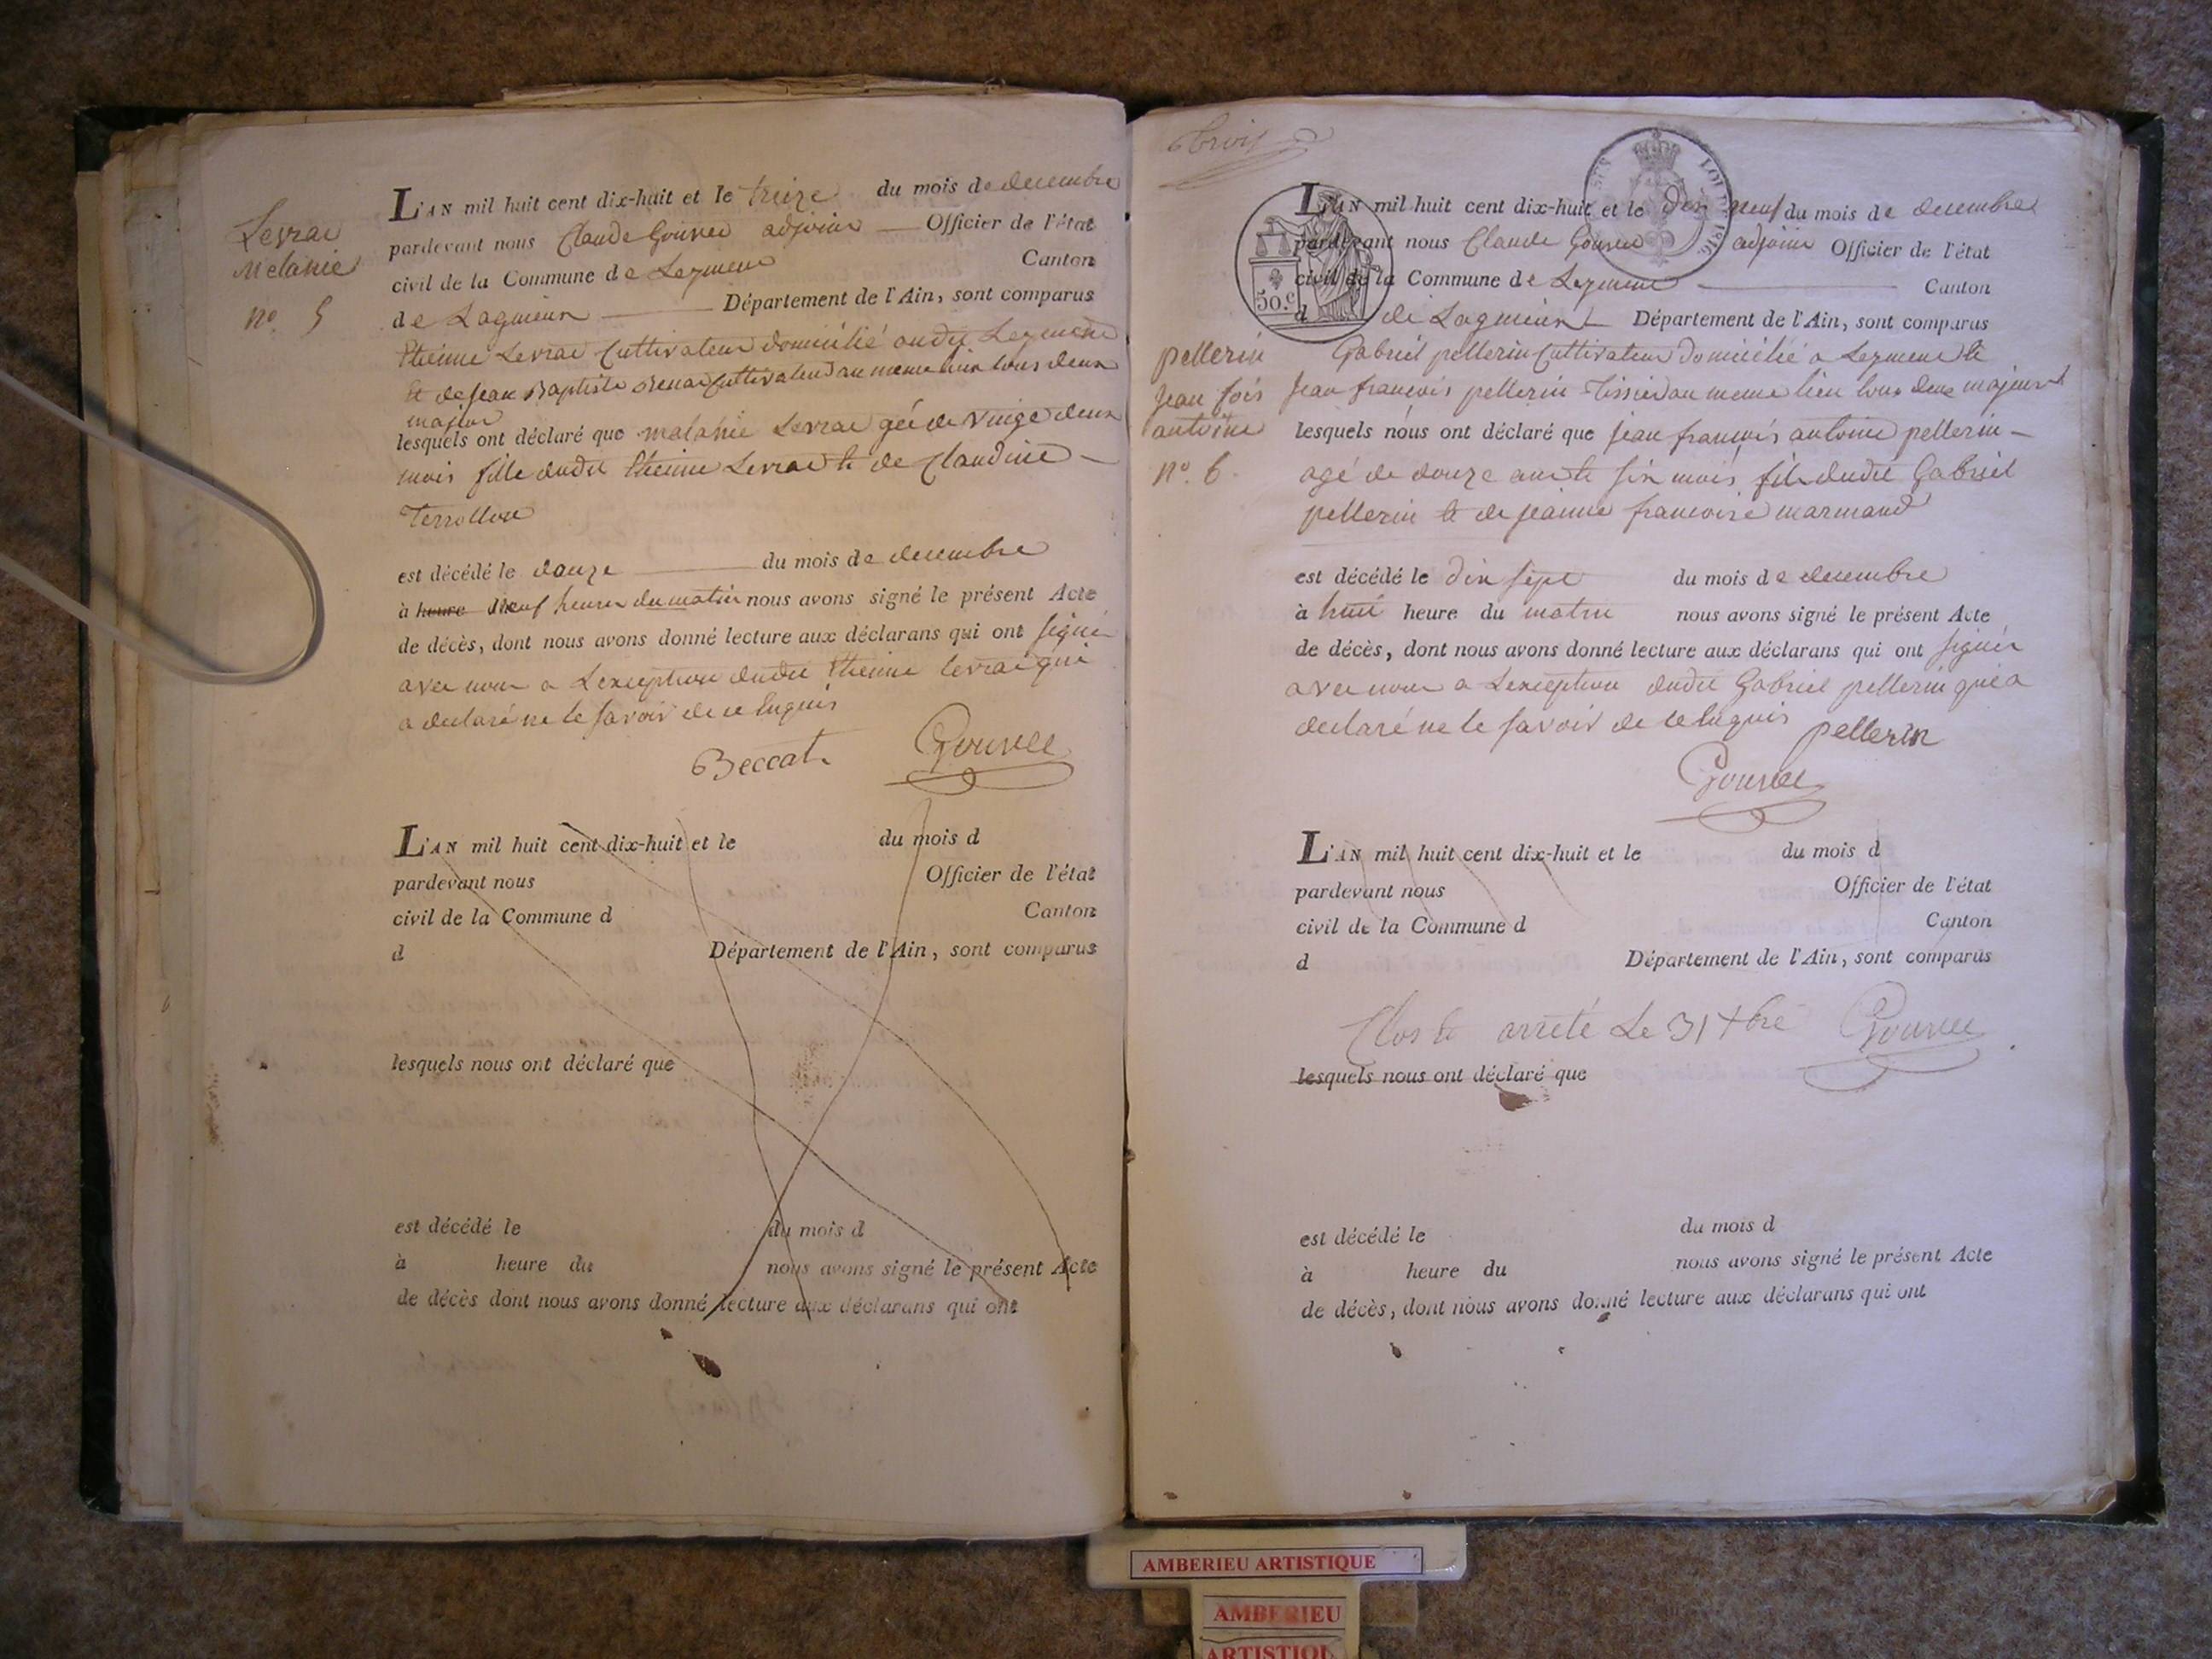 Levrai
Melanie
n.° 5
L'AN mil huit cent dix-huit et le treize du mois de decembre
pardevant nous Claude Gouvee adjoint Officier de l'état
civil de la Commune de Leyment Canton
de Lagnieux Département de l'Ain, sont comparus
Etienne Levrai Cultivateur domicilié audit Leyment
et de Jean Baptiste Cultivateur au meme lieu tous deux
major
lesquels ont déclaré que melanie Levrai gée de vingt deux
mois fille dudit Etienne Levrai et de Claudine
est décédé le douze du mois de decembre
à heure neuf heures du matin nous avons signé le présent Acte
de décès, dont nous avons donné lecture aux déclarans qui ont signé
avec nous a Lexception dudit Etienne Levrai qui
a declaré ne le savoir de ce Enquis
Beccat Gouvee
L'AN mil huit cent dix-huit et le du mois d
pardevant nous Officier de l'état
civil de la Commune d Canton
d Département de l'Ain, sont comparus
lesquels nous ont déclaré que
est décédé le du mois d
à heure du nous avons signé le présent Acte
de décès dont nous avons donné lecture aux déclarans qui ont
trois
50.c
1816
L'AN mil huit cent dix-huit et le dix neuf du mois de decembre
pardevant nous Claude Gouvee adjoint Officier de l'état
civil de la Commune de Leyment Canton
d de Lagnieux Département de l'Ain, sont comparus
pellerin
Jean fois
antoine
n.° 6
Gabriel pellerin Cultivateur Domicilié a Leyment et
Jean francois pellerin Tissier au meme lieu tous deux majeurs
lesquels nous ont déclaré que Jean francois antoine pellerin
agé de douze ans et six mois, fils dudit Gabriel
pellerin et de jeanne francoise marmand
est décédé le dix sept du mois de decembre
à huit heure du matin nous avons signé le présent Acte
de décès, dont nous avons donné lecture aux déclarans qui ont signér
avec nous a Lexception dudit Gabriel pellerin qui a
declaré ne le savoir de ce Enquis pellerin
Gouvee
L'AN mil huit cent dix-huit et le du mois d
pardevant nous Officier de l'état
civil de la Commune d Canton
d Département de l'Ain, sont comparus
Clos et arreté Le 31 Xbre Gouvee
lesquels nous ont déclaré que
est décédé le du mois d
à heure du nous avons signé le présent Acte
de décès, dont nous avons donné lecture aux déclarans qui ont
AMBERIEU ARTISTIQUE
AMBERIEU
ARTISTIQU